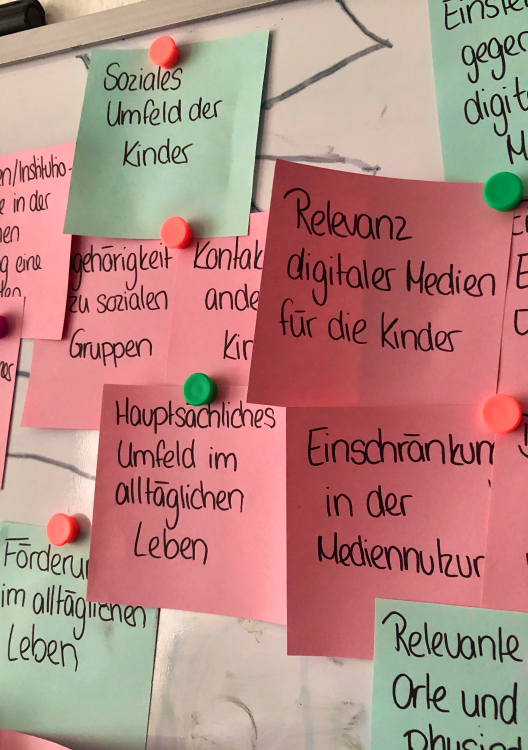 Soziales
Umfeld der
Kinder
gegen
M
in der
g eine
gehörigkeit
zu sozialen
Gruppen
Kontak
ande
Kin
Relevanz
digitaler Medien
für die Kinder
Hauptsächliches
Umfeld im
alltäglichen
Leben
Einschränkun
in der
Mediennutzun
Förderun
im alltäglichen
Leben
Relevante
Orte und